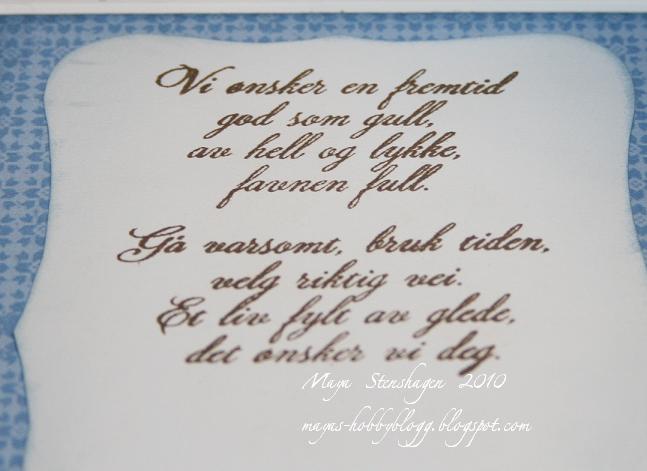 Vi ønsker en fremtid
god som gull,
av hell og lykke,
favnen full.
Gå varsomt, bruk tiden,
velg riktig vei.
Et liv fylt av glede,
det ønsker vi deg.
Maya Stenshagen 2010
mayas-hobbyblogg.blogspot.com